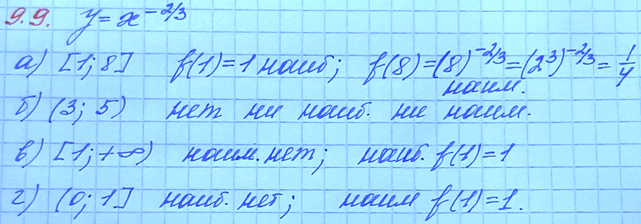 9.9. y = x^{-2/3}
а) [1; 8] f(1) = 1 наиб; f(8) = (8)^{-2/3} = (2^3)^{-2/3} = 1/4
наим.
б) (3; 5) нет ни наиб. ни наим.
в) [1; +∞) наим. нет; наиб. f(1) = 1
г) (0; 1] наиб. нет; наим f(1) = 1.